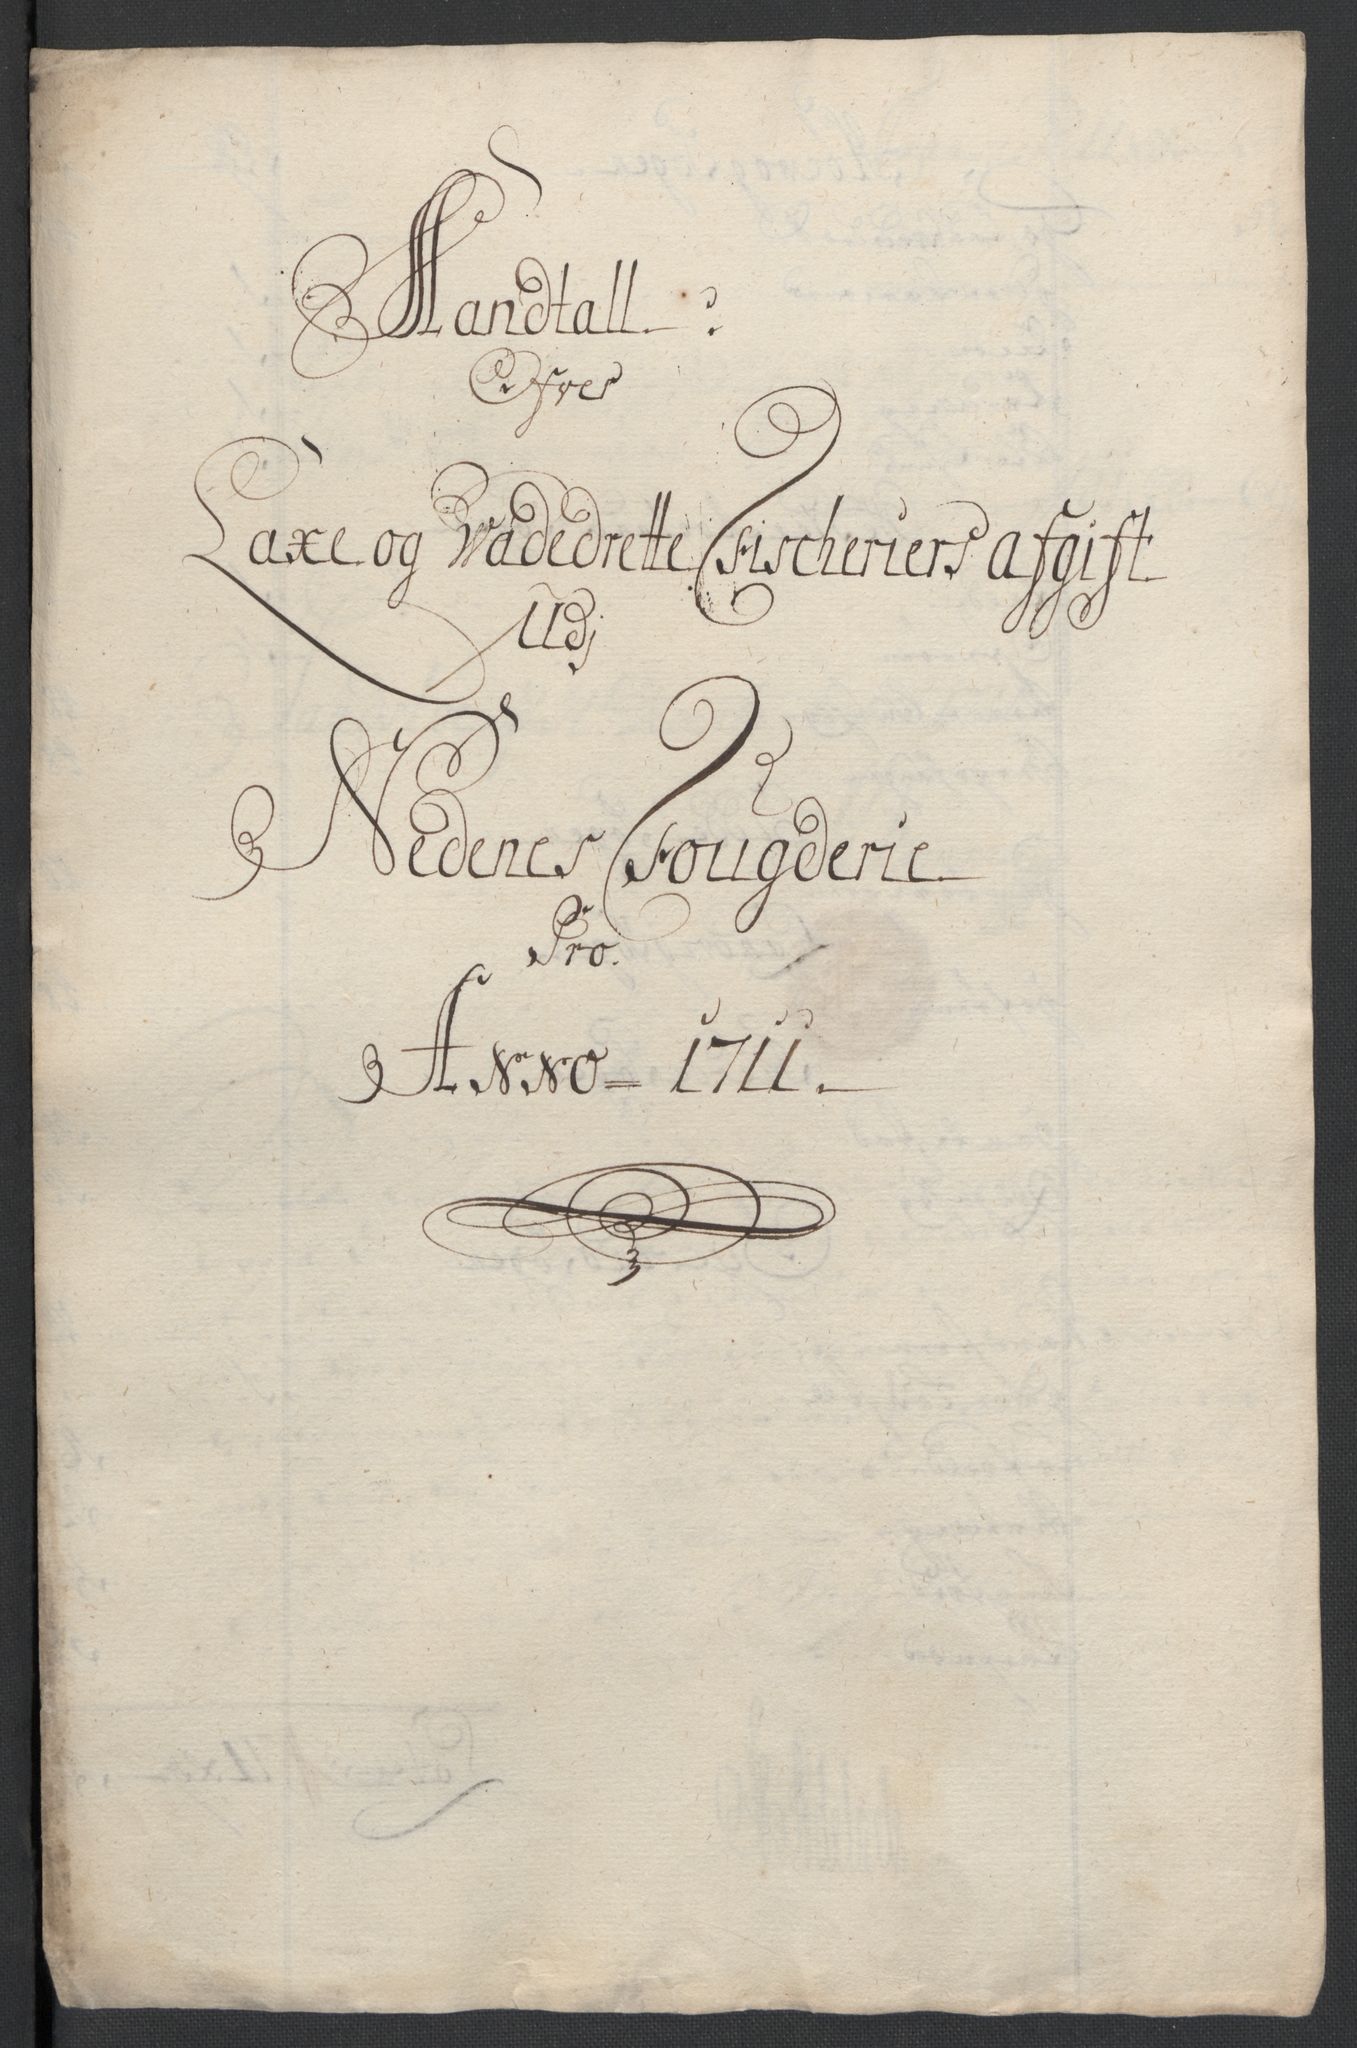 Mandtall
Ofver
Laxe og Wadedrette Fischeriers afgift
Udj
Nedenes Fougderie
Pro.
ANNO 1711.